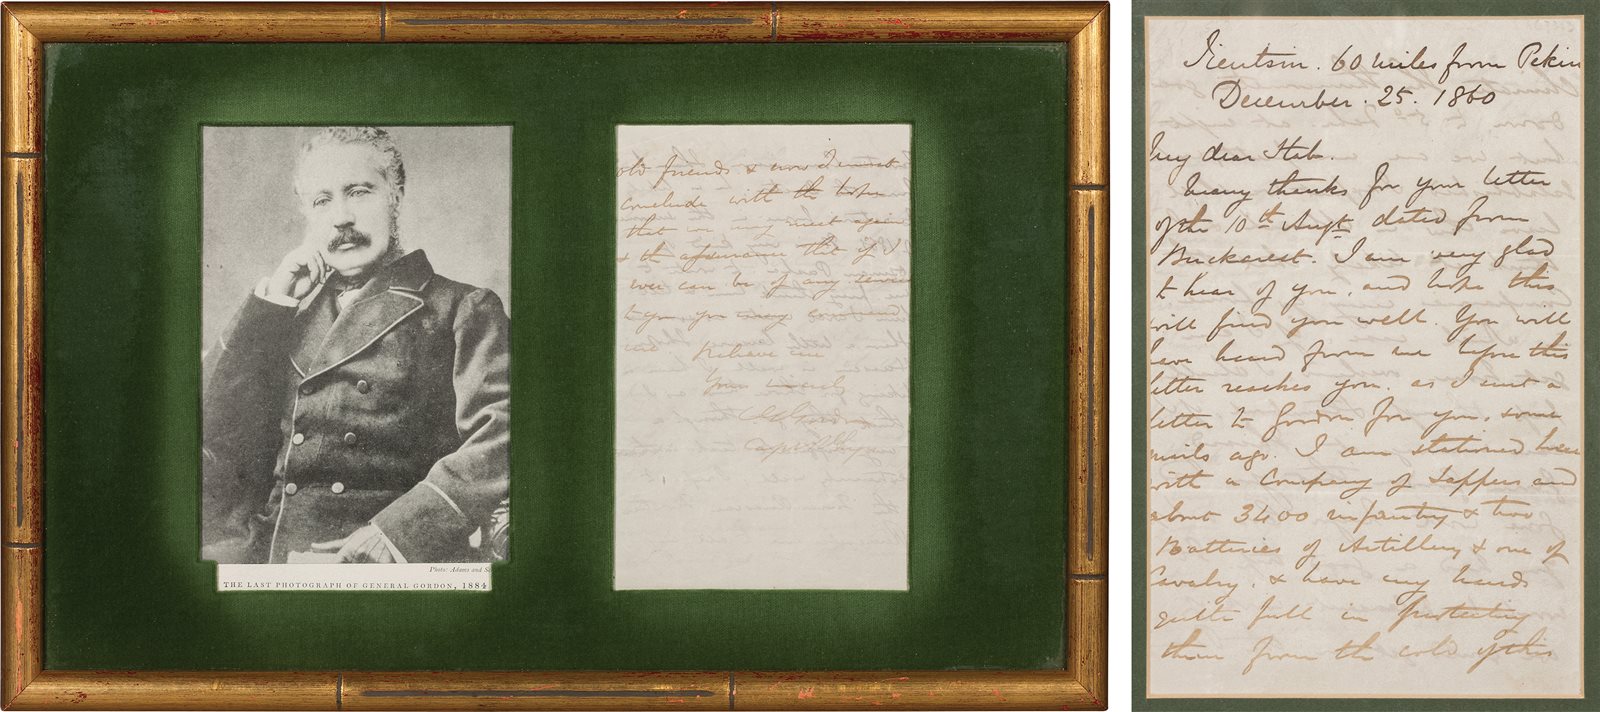 Photo: Adams and S
THE LAST PHOTOGRAPH OF GENERAL GORDON, 1884
old friends & now I must
conclude with the hope
that we may meet again
& the assurance that if I
ever can be of any service
to you, you may command
me Believe me
Yours sincerely
CGGordon
Capt
Tientsin. 60 miles from Pekin
December. 25. 1860
My dear
Many thanks for your letter
of the 10th Augt. dated from
Buckarest. I am very glad
to hear of you, and hope this
will find you well. You will
have heard from me before this
letter reaches you. as I sent a
letter to for you, some
mails ago. I am stationed here
with a Company of Sappers and
about 3400 infantry & two
Batteries of Artillery & one of
Cavalry. & have my hands
quite full in protecting
them from the cold of this